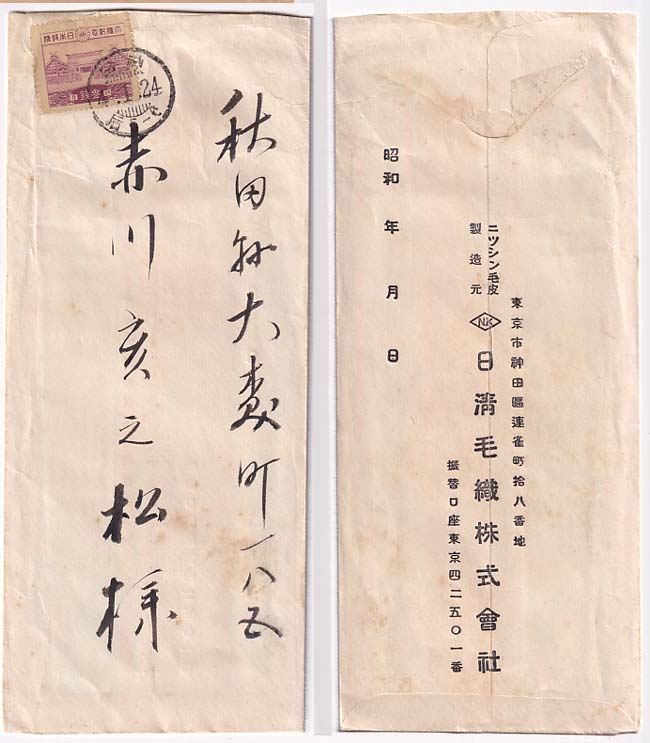 大日本帝國郵便
24
秋田縣大舘町一八五
赤川亥之松様
東京市神田區連雀町拾八番地
ニツシン毛皮
製造元
NK
日淸毛織株式會社
振替口座東京四二五〇一番
昭和 年 月 日